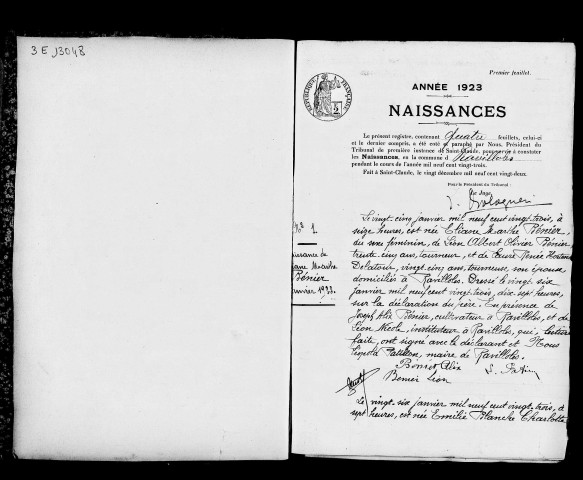 3 E 13048
Premier feuillet.
ANNÉE 1923
RÉPUBLIQUE FRANÇAISE
NAISSANCES
Le présent registre, contenant quatre feuillets, celui-ci
et le dernier compris, a été coté et paraphé par Nous, Président du
Tribunal de première instance de Saint-Claude, pour servir à constater
les Naissances, en la commune d Ravilloles
pendant le cours de l'année mil neuf cent vingt-trois.
Fait à Saint-Claude, le vingt décembre mil neuf cent vingt-deux.
Pour le Président du Tribunal :
Le Juge,
N° 1
issance de
Bénier
anvier 1923.
Le vingt-cinq janvier mil neuf cent vingt-trois, à
seize heures, est née Eliane Marthe Bénier,
du sexe féminin, de Léon Albert Olivier Bénier
trente cinq ans, tourneur, et de Laure Renée Hortense
Delatour, vingt-cinq ans, tourneuse, son épouse
domiciliés à Ravilloles. Dressé le vingt six
janvier mil neuf cent vingt-trois, dix sept heures,
sur la déclaration du père. En présence de
Joseph Alix Bénier, cultivateur à Ravilloles, et de
Léon Nicole, instituteur à Ravilloles, qui, lecture
faite, ont signé avec le déclarant et Nous
maire de Ravilloles.
Bénier Alix
Benier Léon
Le vingt-six janvier mil neuf cent vingt-trois, à
sept heures, est née Emilie Blanche Charlotte